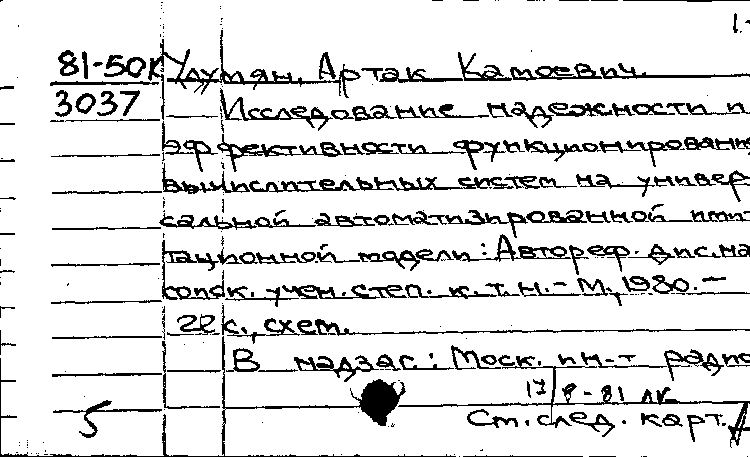 1-
81-50к Улумян, Артак Камоевич.
3037 Исследование надежности и
эффективности функционирования
вычислительных систем на универ-
сальной автоматизированной ими-
тационной модели: Автореф. дис. на
соиск. учен. степ. к. т. н. - М., 1980. —
22 с., схем.
В надзаг.: Моск. ин-т радио
17/8-81 лк
5 Ст. след. карт.